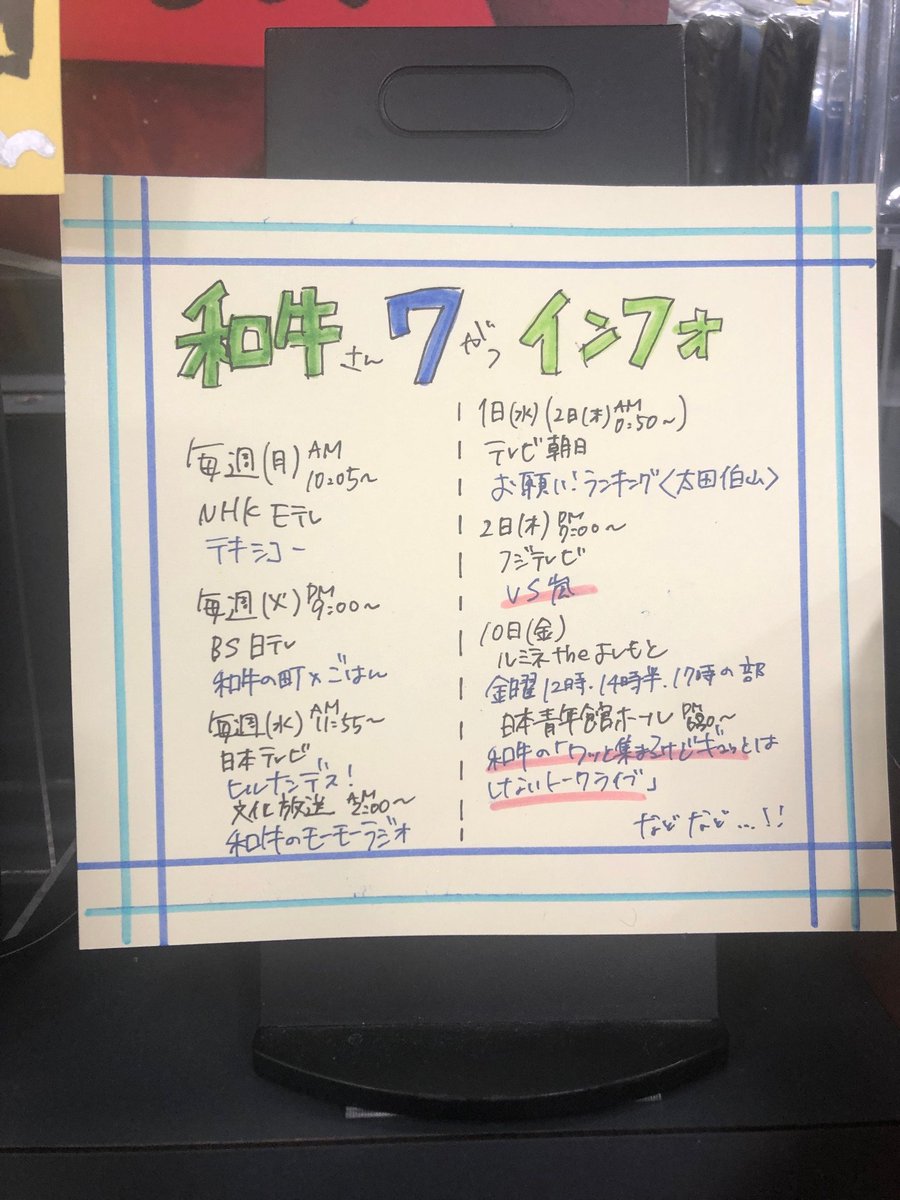 和牛さん 7がつ インフォ
毎週(月) AM 10:05~
NHK Eテレ
テキシコー
毎週(火) PM 9:00~
BS日テレ
和牛の町×ごはん
毎週(水) AM 11:55~
日本テレビ
ヒルナンデス!
文化放送 AM 2:00~
和牛のモーモーラジオ
1日(水)(2日(木) AM 0:50~)
テレビ朝日
お願い!ランキング〈太田伯山〉
2日(木) PM 7:00~
フジテレビ
VS嵐
10日(金)
ルミネtheよしもと
金曜12時・14時半・17時の部
日本青年館ホール PM 6:30~
和牛の「ワッと集まるけどギュッとは
しないトークライブ」
などなど...!!